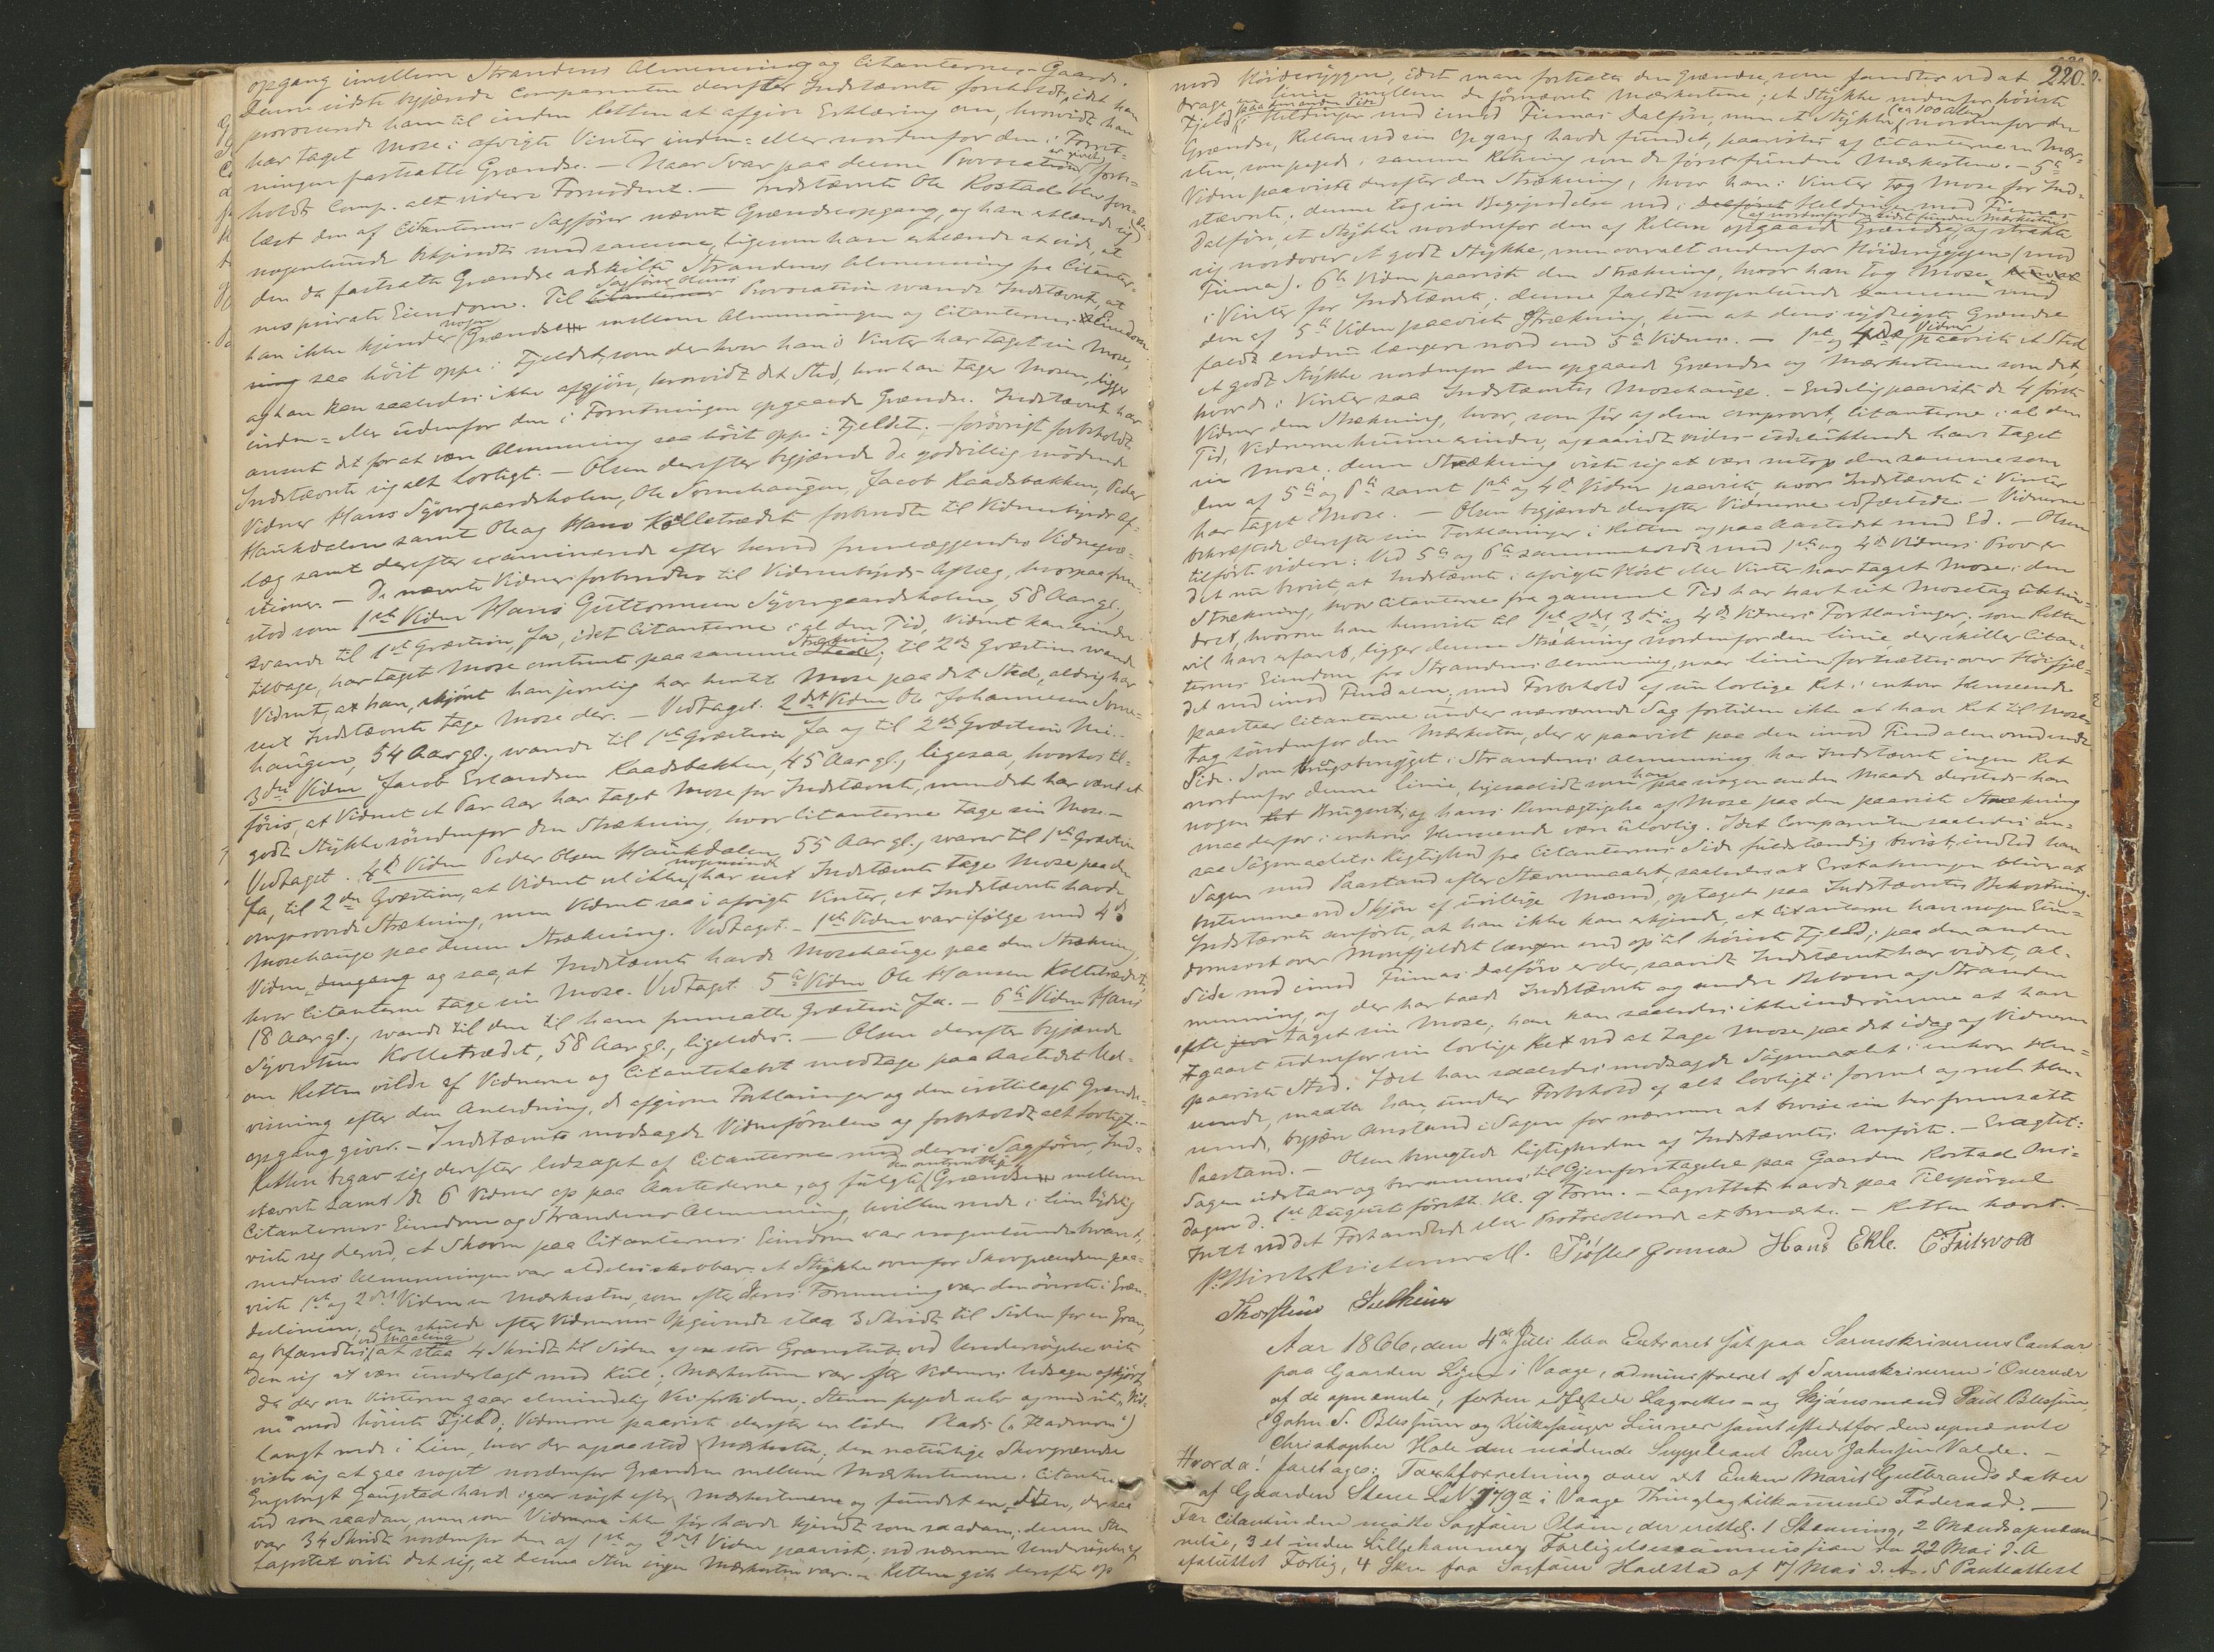 opgang imellem Strandens Almenning og Citanternes Gaarde.
Denne sidste begjærede Comparenten derefter Indstævnte foreholdt, idet han
provocerede ham til inden Retten at afgive Erklæring om, hvorvidt han
har taget Mose i afvigte Vinter inden- eller nordenfor den i Forret-
ningen fastsatte Grændse. — Naar Svar paa denne Provocation er givet, forbe-
holdt Comp. alt videre Fornødent. — Indstævnte Ole Rostad blev fore-
læst den af Citanternes Sagfører nævnte Grændseopgang, og han erklærede sig da
nogenlunde bekjendt med samme, ligesom han erklærede at vide, at
den da fastsatte Grændse adskilte Strandens Almenning fra Citanter-
nes private Eiendom. Til Sagfører Olsens Provocation svarede Indstævnte, at
han ikke kjender nogen Grændse mellem Almenningen og Citanternes Eiendom
saa høit oppe i Fjeldet, som der hvor han i Vinter har taget sin Mose,
og han kan saaledes ikke afgjøre, hvorvidt det Sted, hvor han tager Mosen, ligger
inden- eller udenfor den i Forretningen opgaaede Grændse. Indstævnte har
anseet det for at være Almenning saa høit oppe i Fjeldet; — forøvrigt forbeholdt
Indstævnte sig alt lovligt. — Olsen derefter begjærede de godvillig mødende
Vidner Hans Sjövgaardsholen, Ole Tornehaugen, Jacob Raadsbakken, Peder
Haukdalen samt Ole og Hans Kolletrædet forbundte til Vidnesbyrds Af-
læg samt derefter examinerede efter herved fremlæggendes Vidneqvæ-
stioner. — De nævnte Vidner forbundtes til Vidnesbyrds Aflæg, hvorpaa frem-
stod som 1ste Vidne Hans Guttormsen Sjövgaardsholen, 58 Aar gl.,
svarede til 1ste Qvæstion, Ja, idet Citanterne i al den Tid, Vidnet kan erindre
tilbage, har taget Mose omtrent paa samme Strækning; til 2den Qvæstion svarede
Vidnet, at han, skjönt han jevnlig har hentet Mose paa det Sted, aldrig har
seet Indstævnte tage Mose der. — Vedtaget. 2det Vidne Ole Johannesen Torne-
haugen, 54 Aar gl., svarede til 1ste Qvæstion Ja og til 2den Qvæstion Nei. —
3die Vidne Jacob Erlandsen Raadsbakken, 45 Aar gl., ligesaa, hvorhos til-
föies, at Vidnet et Par Aar har taget Mose for Indstævnte, men det har været et
godt Stykke söndenfor den Strækning, hvor Citanterne tage sin Mose. —
Vedtaget. 4de Vidne Peder Olsen Haukdalen, 55 Aar gl., svarer til 1ste Qvæstion
Ja, til 2den Qvæstion, at Vidnet vel ikke nogensinde har seet Indstævnte tage Mose paa den
omprovede Strækning, men Vidnet saa i afvigte Vinter, at Indstævnte havde
Mosehauge paa denne Strækning. Vedtaget. — 1ste Vidne var ifølge med 4de
Vidne og saa, at Indstævnte havde Mosehauge paa den Strækning,
hvor Citanterne tage sin Mose. Vedtaget. 5te Vidne Ole Hansen Kolletrædet,
18 Aar gl., svarede til den til ham fremsatte Qvæstion Ja. — 6te Vidne Hans
Syvertsen Kolletrædet, 58 Aar gl., ligeledes. — Olsen derefter begjærede
om Retten vilde af Vidnerne og Citantskabet modtage paa Aastedet Ud-
visning efter den Anledning, de afgivne Forklaringer og den irettelagte Grændse-
opgang giver. — Indstævnte modsagde Vidneförselen og forbeholdt alt lovligt. —
Retten begav sig derefter ledsaget af Citanterne med deres Sagförer, Ind-
stævnte samt de 6 Vidner op paa Aastederne, og fulgte den omtvistede Grændse mellem
Citanternes Eiendom og Strandens Almenning, hvilken nede i Lien tydelig
viste sig derved, at Skoven paa Citanternes Eiendom var nogenlunde bevaret,
medens Almenningen var aldeles skovbar; et Stykke ovenfor Skovgrændsen paa-
viste 1ste og 2det Vidne en Mærkesten, som efter deres Formening var den överste i Græn-
delinien; den skulde efter Vidnernes Opgivende staa 3 Skridt til Siden for en Gran,
og befandtes ved Maaling at staa 4 Skridt til Siden af en stor Granstub; ved Undersögelse viste
den sig at være underlagt med Kul; Mærkestenen var efter Vidnernes Udsagn afkjört,
da der om Vinteren gaar almindelig Vei forbi den; Stenen pegede selv og med sit Vid-
ne mod höieste Fjeld; Vidnerne paaviste derefter en liden Plads („Pladsmoen")
langt nede i Lien, hvor der ogsaa stod Mærkesten; den naturlige Skovgrændse
viste sig at gaa noget nordenfor Grændsen mellem Mærkestenene. Citanten
Engebregt Gaugstad havde igaar sögt efter Mærkestenene og fundet en Sten, der saa
ud som saadan, men som Vidnerne ikke för havde kjendt som saadan; denne Sten
var 34 Skridt nordenfor den af 1ste og 2det Vidne paaviste; ved nærmere Undersögelse af
Lagrettet viste det sig, at denne Sten ingen Mærkesten var. — Retten gik derefter op
220.
mod Höiderÿggen, idet man fortsatte den Grændse, som fandtes ved at
drage en Linie mellem de förnævnte Mærkestene; et Stykke nedenfor höieste
Fjeld, paa den anden Side i Heldinger ned imod Finnas Dalföre, men et Stykke (ca 100 Alen) nordenfor den
Grændse, Retten ved sin Opgang havde fundet, paavistes af Citanterne en Mær-
sten, som pegede i samme Retning som de först fundne Mærkestene. — 5te
Vidne paaviste derefter den Strækning, hvor han i Vinter tog Mose for Ind-
stævnte; denne tog sin Begyndelse ved i Heldingen mod Finnas
Dalföre, et Stykke nordenfor den af Retten opgaaede Grændse og nordenfor den sidst fundne Mærkesten, og strakte
sig nordover et godt Stykke, men overalt nedenfor Höideryggene (mod
Finna). 6te Vidne paaviste den Strækning, hvor han tog Mose
i Vinter for Indstævnte; denne faldt nogenlunde sammen med
den af 5te Vidne paaviste Strækning, kun at dens sydligste Grændse
faldt endnu længere nord end 5te Vidnes. — 1ste og 4de Vidner paaviste et Sted
et godt Stykke nordenfor den opgaaede Grændse og Mærkestenen som det,
hvor de i Vinter saa Indstævntes Mosehauge. — Endelig paaviste de 4 förste
Vidner den Strækning, hvor, som för af dem omprovet, Citanterne i al den
Tid, Vidnerne kunne erindre, og saavidt vides udelukkende have taget
sin Mose; denne Strækning viste sig at være netop den samme som
den af 5te og 6te samt 1ste og 4de Vidner paaviste, hvor Indstævnte i Vinter
har taget Mose. — Olsen begjærede derefter Vidnerne edfæstede. — Vidnerne
bekræftede derefter sine Forklaringer i Retten og paa Aastedet med Ed. — Olsen
tilförte videre: Ved 5te og 6te sammenholdt med 1ste og 4de Vidners Prov er
det nu bevist, at Indstævnte i afvigte Höst eller Vinter har taget Mose i den
Strækning, hvor Citanterne fra gammel Tid har havt sit Mosetag ubehin-
dret, hvorom han henviste til 1ste, 2det, 3die og 4de Vidners Forklaringer; som Retten
vil have erfaret, ligger denne Strækning nordenfor den Linie, der skiller Citan-
ternes Eiendom fra Strandens Almenning, naar Linien fortsættes over Höifjel-
det ned imod Findalen; med Forbehold af sin lovlige Ret i enhver Henseende
paastaar Citanterne under nærværende Sag fortiden ikke at have Ret til Mose-
tag söndenfor den Mærkesten, der er paavist paa den imod Findalen vendende
Side. Som brugsberettiget i Strandens Almenning har Indstævnte ingen Ret
nordenfor denne Linie, ligesaalidt som han paa nogen anden Maade dersteds har
nogen Brugsret, og hans Bemægtigelse af Mose paa den paaviste Strækning
maa derfor i enhver Henseende være ulovlig. Idet Comparenten saaledes an-
saa Sögsmaalets Rigtighed fra Citanternes Side fuldstændig bevist, indlod han
Sagen med Paastand efter Stævnemaalet, saaledes at Erstatningen bliver at
bestemme ved Skjön af uvillige Mænd, optaget paa Indstævntes Bekostning.
Indstævnte anförte, at han ikke kan erkjende, at Citanterne have nogen Eien-
domsret over Mosefjeldet længere end op til höieste Fjeld; paa den anden
Side ned imod Finnas Dalföre er der, saavidt Indstævnte har vidst, Al-
menning, og der har baade Indstævnte og andre Beboere af Stranden
ofte taget sin Mose; han kan saaledes ikke indrömme at have
gaaet udenfor sin lovlige Ret ved at tage Mose paa det idag af Vidnerne
paaviste Sted. Idet han saaledes modsagde Sögsmaalet i enhver Hen-
seende, maatte han, under Forbehold af alt lovligt i formel og reel Hen-
seende, begjære Anstand i Sagen for nærmere at bevise sin her fremsatte
Paastand. — Olsen benegtede Rigtigheden af Indstævntes Anförte. — Eragtet:
Sagen udstaar og berammes til Gjenforetagelse paa Gaarden Rostad Ons-
dagen d. 1ste August förstk. Kl. 9 Form. — Lagrettet havde paa Tilspörgsel
Intet ved det Forhandlede eller Protocollerede at bemærke. — Retten hævet. —
Hans Ekle.
Thorstein
Aar 1866, den 4de Juli blev Extraret sat paa Sorenskriverens Contor
paa Gaarden i Vaage, administreret af Sorenskriveren i Overvær
af de opnævnte, forhen edfæstede Lagrettes- og Skjönsmænd Paul Blessum
John S. Blessum og Kirkesanger samt istedetfor den opnævnte
Christopher Hole den mødende Suppleant Iver Johnsen Valde. —
Hvorda! foretages: Taxtforretning over det Enken Marit Gulbrandsdatter
af Gaarden LN. 179a i Vaage Thinglag tilkommende Føderaad. —
For Citantinden mødte Sagfører Olsen, der irettel. 1 Stævning, 2 Mandsopnæv-
nelse, 3 et inden Lillehammer Forligelsescommission den 22 Mai d. A.
afsluttet Forlig, 4 Skr. fra Sagfører af 17 Mai d. A. 5 Panteattest